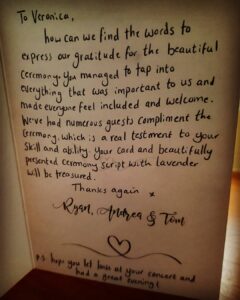 To Veronica,
how can we find the words to
express our gratitude for the beautiful
ceremony. You managed to tap into
everything that was important to us and
made everyone feel included and welcome.
We've had numerous guests compliment the
ceremony, which is a real testement to your
skill and ability. Your card and beautifully
presented ceremony script with lavender
will be treasured.
Thanks again x
Ryan, Andrea & Tom
P.S. hope you let loose at your concert and
had a great evening!